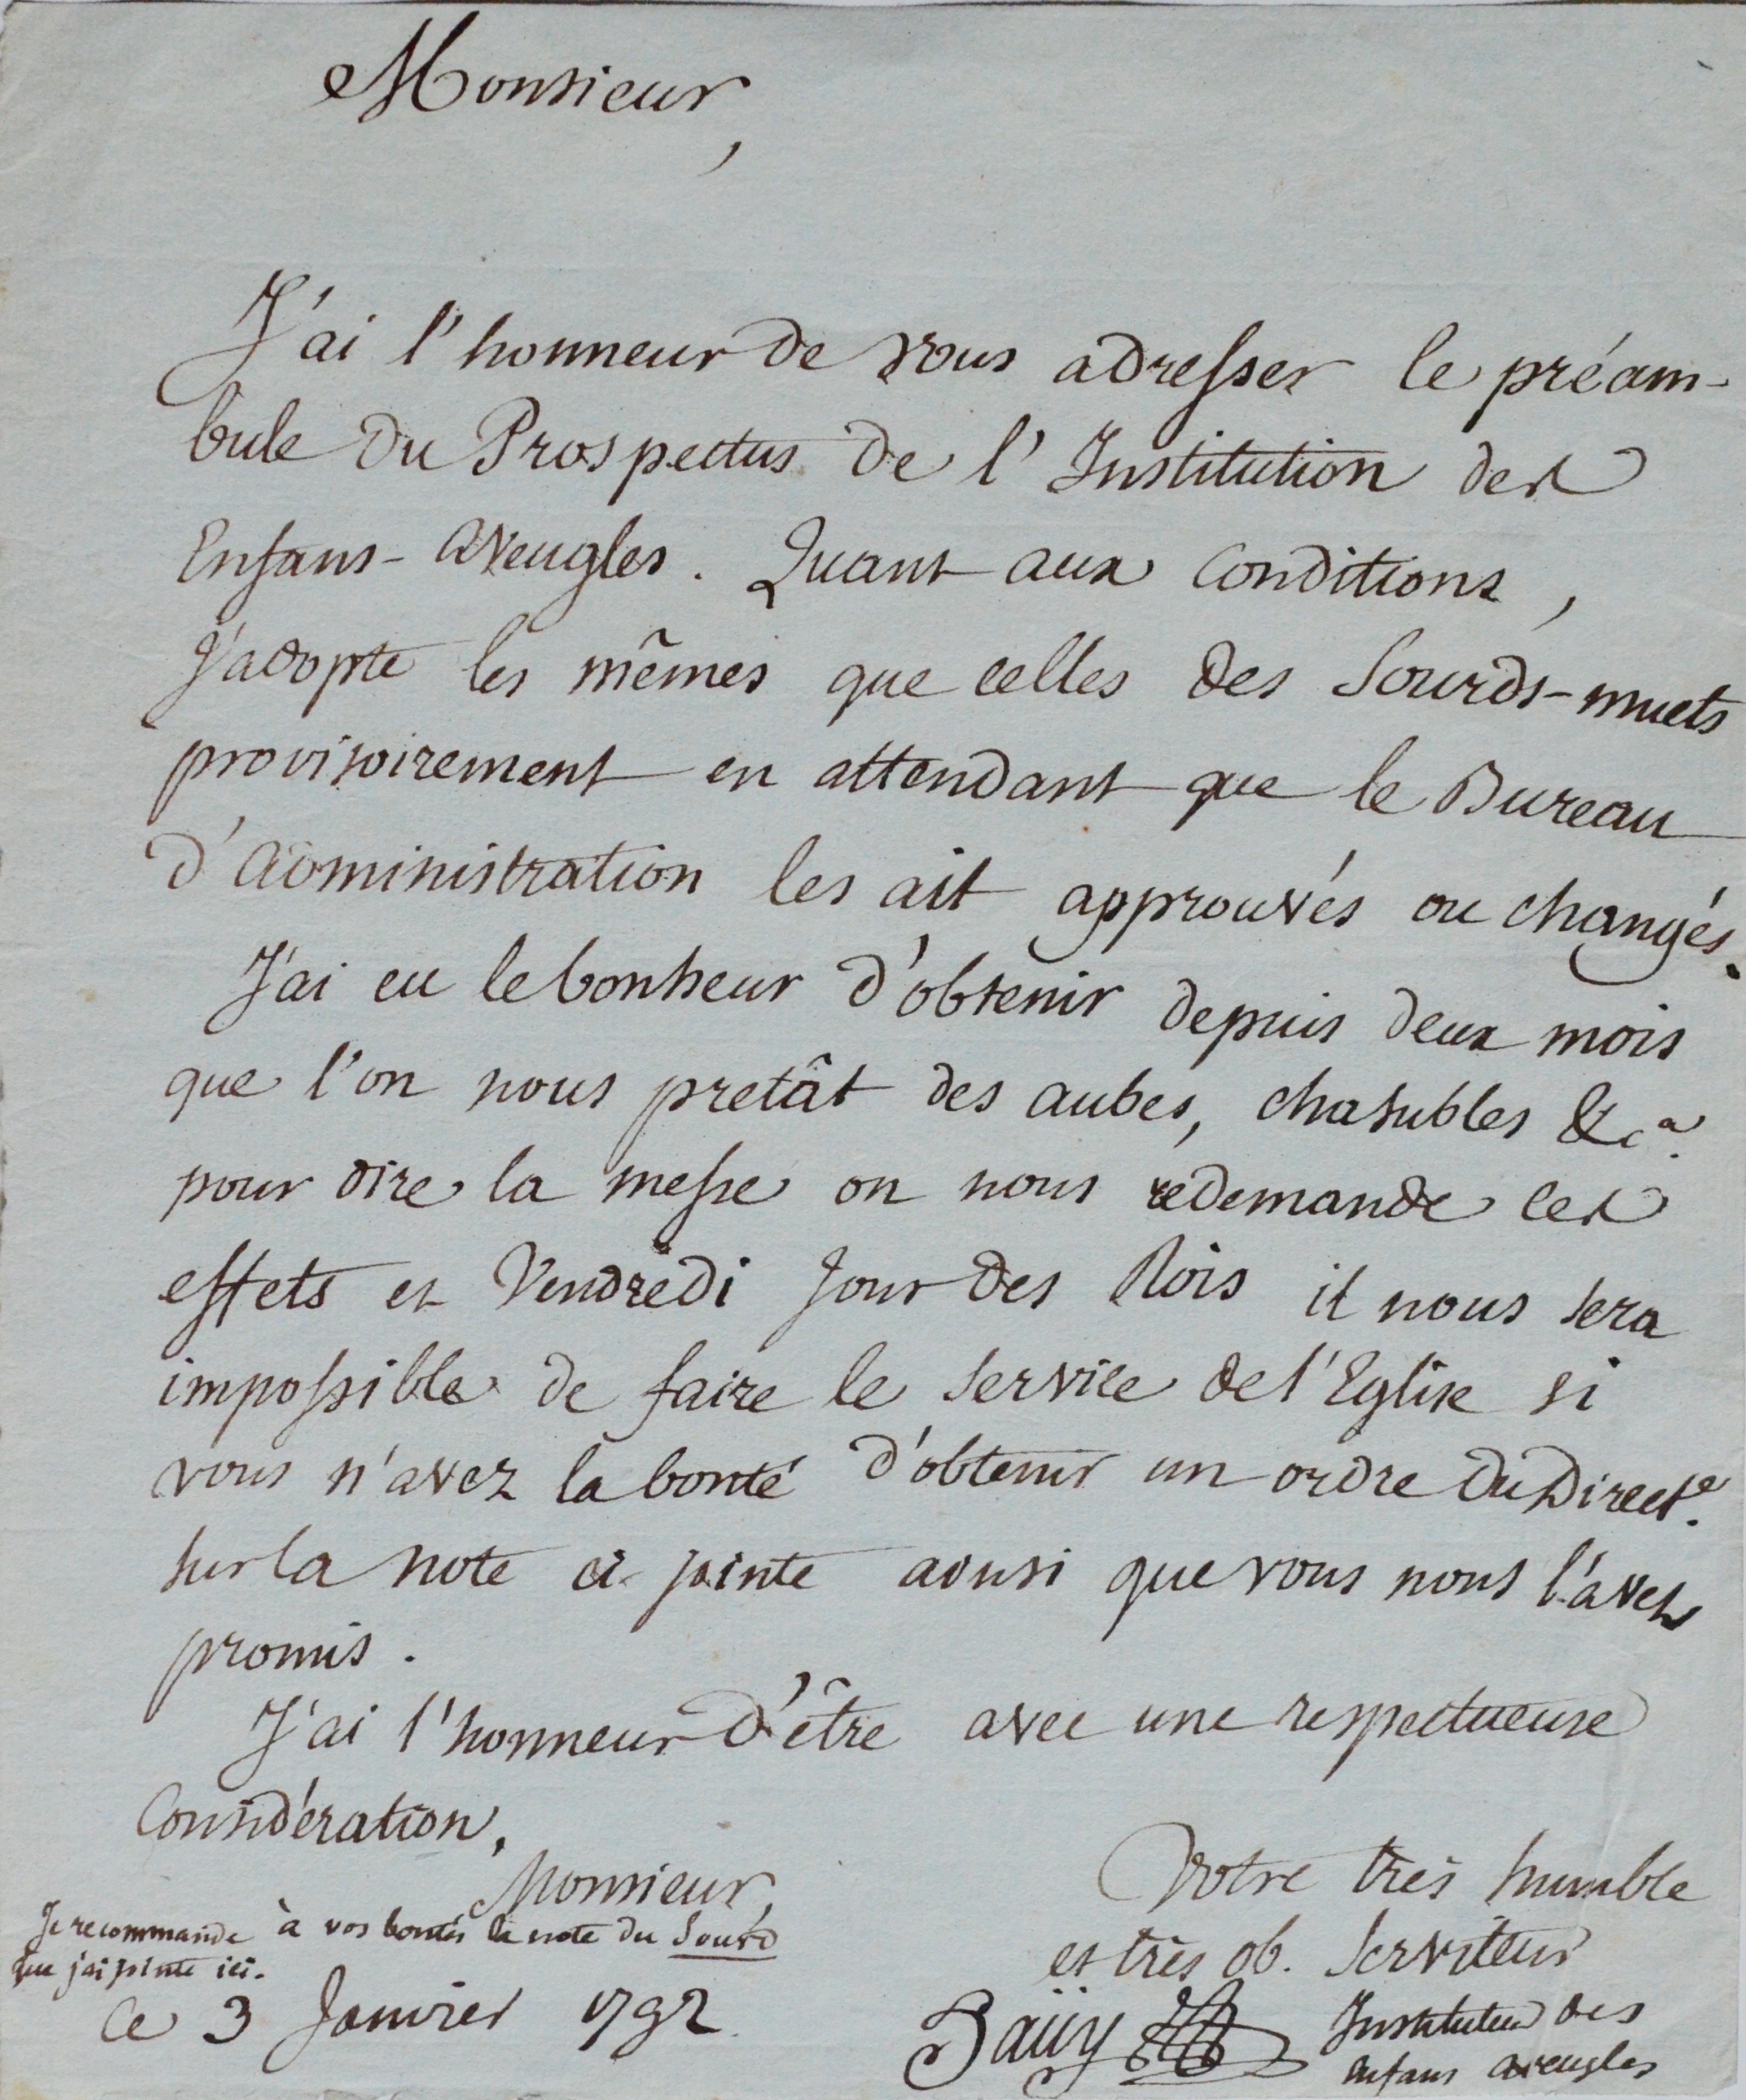 Monsieur,
J'ai l'honneur de vous adresser le préam-
bule du Prospectus de l'Institution des
Enfans-aveugles. Quant aux Conditions,
j'adopte les mêmes que celles des Sourds-muets
provisoirement en attendant que le Bureau
d'administration les ait approuvés ou changés.
J'ai eu le bonheur d'obtenir depuis deux mois
que l'on nous pretât des aubes, chasubles &ca.
pour dire la messe on nous redemande ces
effets et Vendredi jour des Rois il nous sera
impossible de faire le service de l'Eglise si
vous n'avez la bonté d'obtenir un ordre du Directe.
sur la note ci jointe ainsi que vous nous l'avez
promis.
J'ai l'honneur d'être avec une respectueuse
Considération,
Monsieur,
Votre très humble
et très ob. Serviteur
Haüy Instituteur des
enfans aveugles
Je recommande à vos bontés la note du Sourd
que j'ai jointe ici.
Ce 3 Janvier 1792.